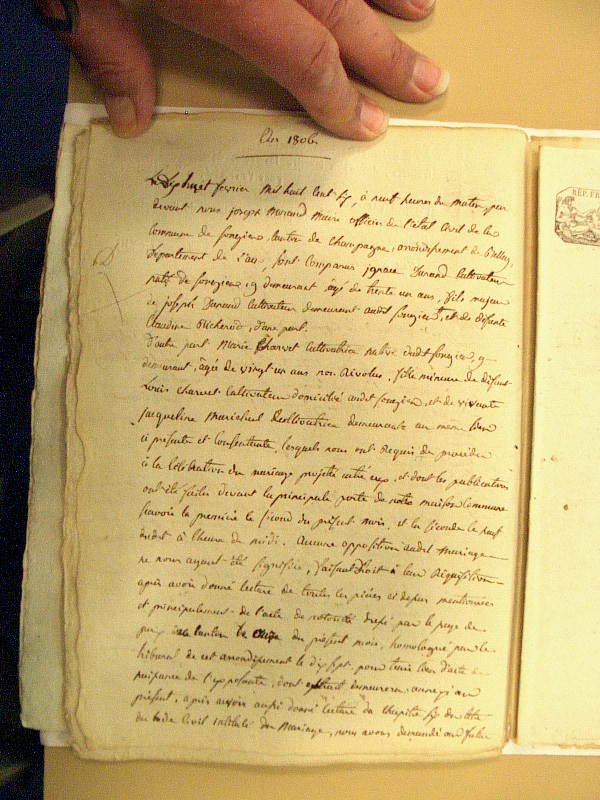 An 1806.
Le Dix huit fevrier mil huit cent six, à neuf heures du matin, par
devant nous joseph Maire officier de l'état Civil de la
Commune de songieu Canton de champagne, arrondissement de Belley,
Département de l'ain, sont Comparus ignace Durand Cultivateur
natif de songieu, y demeurant âgé de trente un ans, fils majeur
de joseph Durand Cultivateur demeurant audit songieu, et de défunte
Claudine d'une part.
D'autre part Marie Charvet Cultivatrice native dudit songieu, y
demeurant, âgée de vingt un ans non Révolus, fille mineure de défunt
Louis charvet Cultivateur domicilié audit songieu, et de vivante
jacqueline Marechal Cultivatrice demeurante au même lieu
ci présente et Consentante, lesquels nous ont Requis de procéder
à la Célébration du mariage projetté entre eux, et dont les publications
ont été faites devant la principale porte de notre maison Commune
sçavoir la première le second du présent mois, et la seconde le neuf
dudit à l'heure de midi. Aucune opposition audit Mariage
ne nous ayant été signifiée, faisant Droit à leur Réquisition
après avoir donné lecture de toutes les pièces ci dessus mentionnées
et principalement de l'acte de notorité dressé par le juge de
paix du Canton le du présent mois, homologué par le
tribunal de cet arrondissement le dix sept, pour tenir lieu d'acte de
naissance de l'exposante, dont extrait demeurera annexé au
présent, après avoir aussi donné lecture du Chapitre six du titre
du Code Civil intitulé du Mariage, nous avons demandé au futur
REP. FR